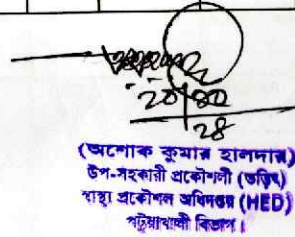 20/10
28
(অশোক কুমার হালদার)
উপ-সহকারী প্রকৌশলী (তড়িৎ)
স্বাস্থ্য প্রকৌশল অধিদপ্তর (HED)
পটুয়াখালী বিভাগ।